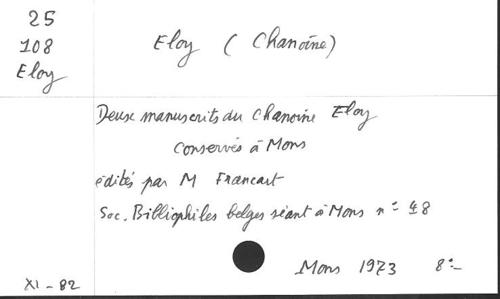 25
108
Eloy
Eloy ( Chanoine)
Deux manuscrits du Chanoine Eloy
conservés à Mons
édités par M Francart
Soc. Bibliophiles belges séant à Mons n° 48
Mons 1973 8°
XI - 82